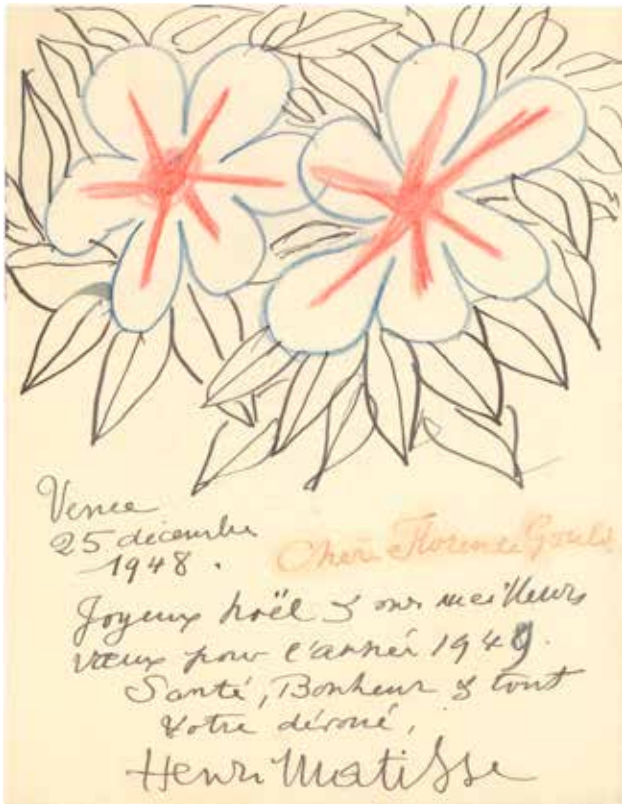 Vence
25 décembre
1948.
Chère Florence Gould
Joyeux Noël & mes meilleurs
vœux pour l'année 1949.
Santé, Bonheur & tout
Votre dévoué,
Henri Matisse